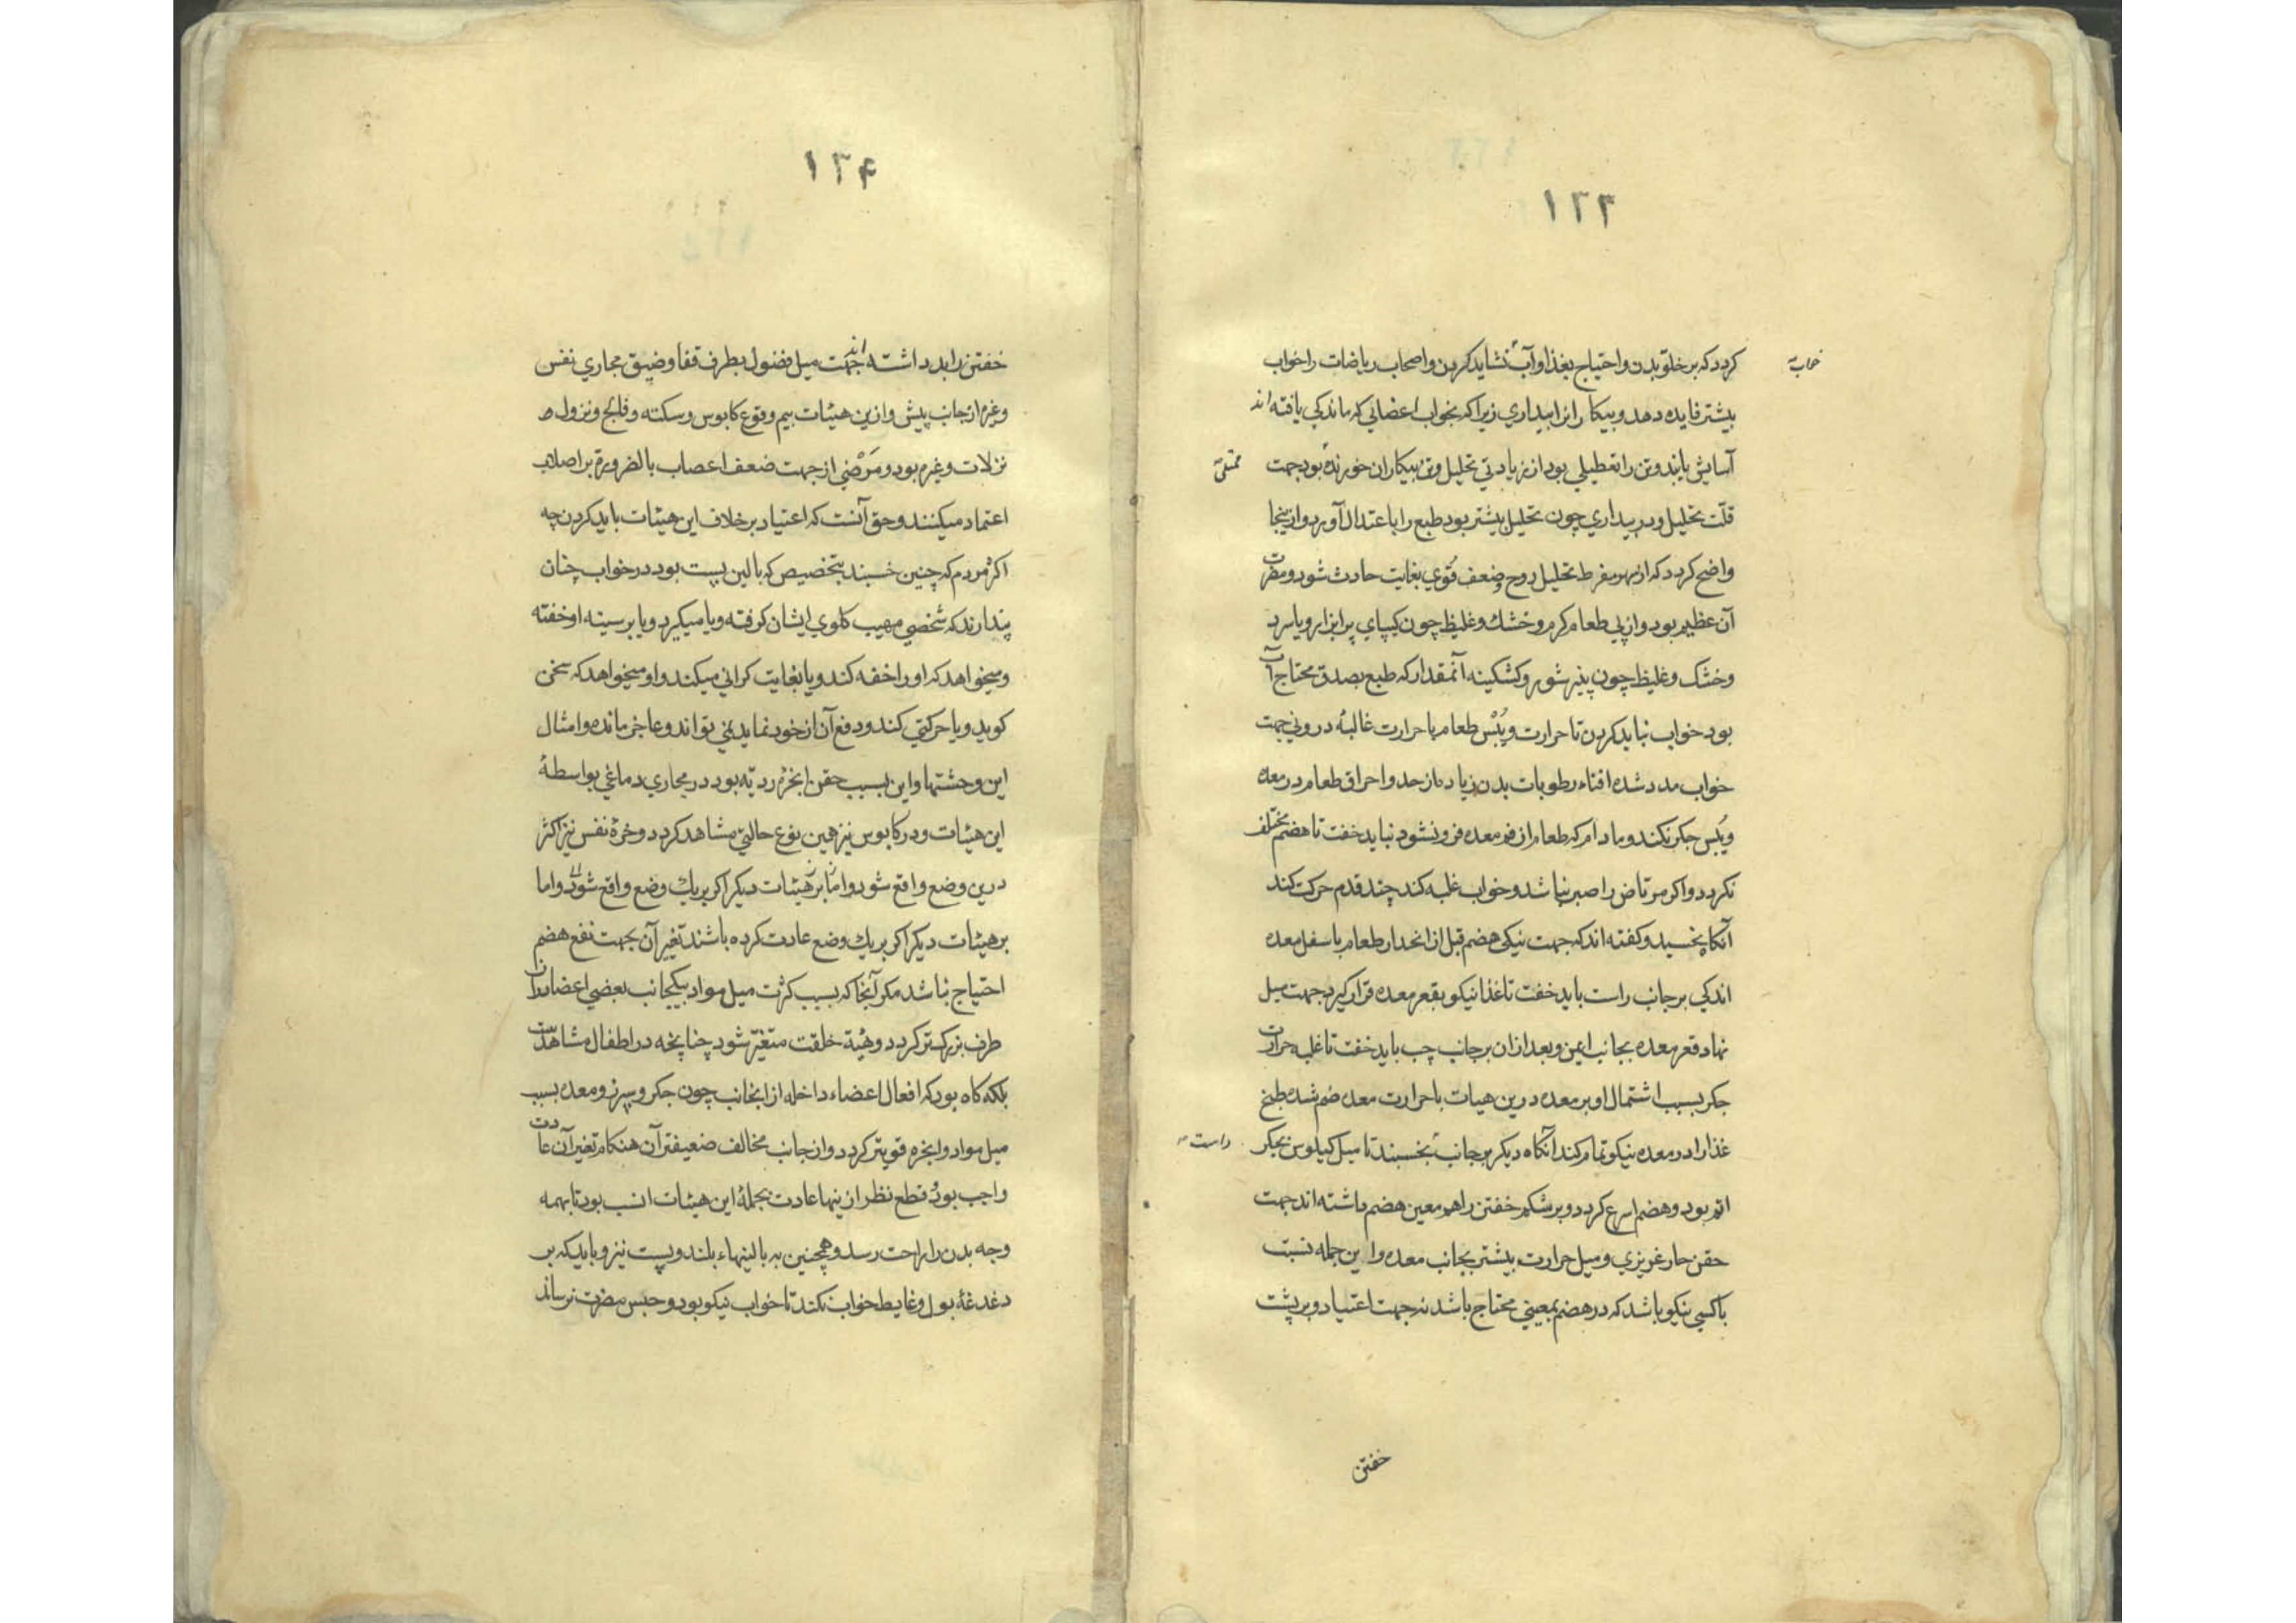 ۱۲۳
کردد که بر خلو بدن و احتیاج بغذا و آب نشاید کردن و اصحاب ریاضات را خواب
خوابه
بیشتر فایده دهد و بیکاران را بیداری زیرا که بخواب اعضایی که ماندکی یافته اند
آسایش یابند و تن را تعطیلی بود از زیادتی تحلیل و تن بیکاران خورنده بود جهت
ممتلی
قلّت تحلیل و در بیداری چون تحلیل بیشتر بود طبع را باعتدال آورد و از ینجا
واضح کردد که از سهر مفرط تحلیل روح و ضعف قُوی بغایت حادث شود و مضرت
آن عظیم بود و از پی طعام کرم و خشك و غلیظ چون کیپای پر ابزار و یا سرد
و خشک و غلیظ چون پنیر شور و کشکینه آنمقدار که طبع بصدق محتاج آب
بود خواب نباید کردن تا حرارت و یُبْس طعام با حرارت غالبهٔ درونی جهت
خواب مدد شده افناء رطوبات بدن زیاد از حد و احراق طعام در معده
و یُبس جکر نکند و مادام که طعام از فم معده فرو نشود نباید خفت تا هضم مختلف
نکردد و اکر مرتاض را صبر نباشد و خواب غلبه کند چند قدم حرکت کند
آنکاه بخسبد و کفته اند که جهت نیکی هضم قبل از انحدار طعام باسفل معده
اندکی بر جانب راست باید خفت تا غذا نیکو بقعر معده قرار کیرد جهت میل
نهاد قعر معده بجانب ایمن و بعد ازان بر جانب چپ باید خفت تا غلبه حرارت
جکر بسبب اشتمال او بر معده درین هیات با حرارت معده ضم شده طبخ
غذا را در معده نیکو تمام کند آنکاه دیکر بر جانب بخسبند تا میل کیلوس بجکر
راست
اتم بود و هضم اسرع کردد و بر شکم خفتن را هم معین هضم داشته اند جهت
حقن حار غریزی و میل حرارت بیشتر بجانب معده و این جمله نسبت
با کسی نیکو باشد که در هضم بمعینی محتاج باشد نه جهت اعتیاد و بر پشت
خفتن
۱۲۴
خفتن را بد داشته اند جهت میل فضول بطرف قفا و ضیق مجاری نفس
و غیره از جانب پیش و ازین هیئات بیم وقوع کابوس و سکته و فالج و نزول
نزلات و غیره بود و مَرْضَی از جهت ضعف اعصاب بالضرورة بر اصلاب
اعتماد میکنند و حق آنست که اعتیاد بر خلاف این هیئات باید کردن چه
اکثر مردم که چنین خسبند بتخصیص که بالین پست بود در خواب چنان
پندارند که شخصی مهیب کلوی ایشان کرفته و یا میکیرد و یا بر سینه او خفته
و میخواهد که او را خفه کند و یا بغایت کرانی میکند و او میخواهد که سخن
کوید و یا حرکتی کند و دفع آن از خود نماید نمی تواند و عاجز مانده و امثال
این وحشتها و این بسبب حقن ابخرهٔ ردیّه بود در مجاری دماغی بواسطهٔ
این هیئات و در کابوس نیز همین نوع حالتی مشاهد کردد و خرهٔ نفس نیز اکثر
درین وضع واقع شود و اما بر هیئات دیکر اکر بر یك وضع واقع شود و اما
بر هیئات دیکر اکر بر یك وضع عادت کرده باشند تغیر آن بجهت نفع هضم
احتیاج نباشد مکر آنجا که بسبب کثرت میل مواد بیکجانب بعضی اعضا ازان
طرف بزرکتر کردد و هیئة خلقت متغیّر شود چنانچه در اطفال مشاهدست
بلکه کاه بود که افعال اعضاء داخله از انجانب چون جکر و سپرز و معده بسبب
میل مواد و ابخره قویتر کردد و از جانب مخالف ضعیفتر آن هنکام تغیر آن عادت
واجب بود و قطع نظر از ینها عادت بجملهٔ این هیئات انسب بود تا بهمه
وجه بدن را راحت رسد و همچنین به بالینهاء بلند و پست نیز و باید که بر
دغدغهٔ بول و غایط خواب نکند تا خواب نیکو بود و حبس مضرت نرساند